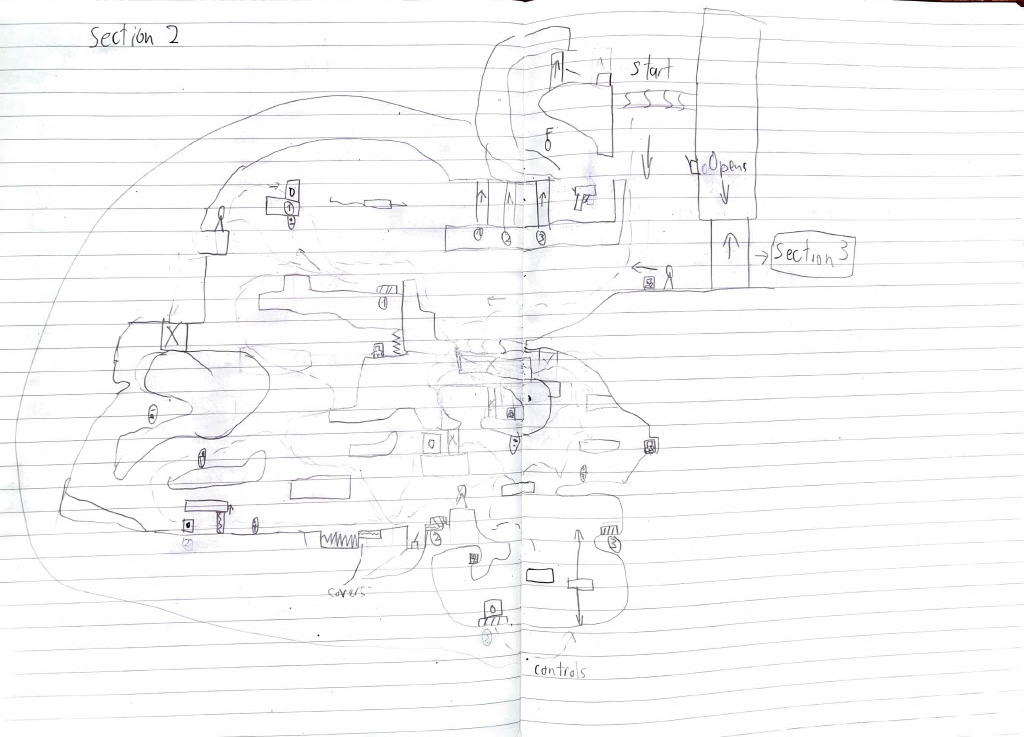 Section 2
Start
Opens
Section 3
1
2
3
1
1
2
3
covers
2
controls